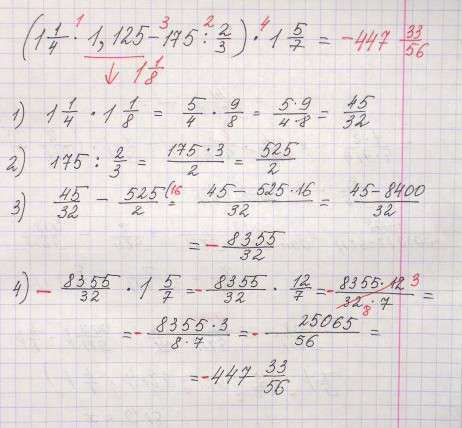 (1 1/4 ·¹ 1,125 −³ 175 :² 2/3) ·⁴ 1 5/7 = −447 33/56
↓ 1 1/8
1) 1 1/4 · 1 1/8 = 5/4 · 9/8 = 5·9/4·8 = 45/32
2) 175 : 2/3 = 175·3/2 = 525/2
3) 45/32 − 525/2 (16 = 45−525·16/32 = 45−8400/32
= −8355/32
4) −8355/32 · 1 5/7 = −8355/32 · 12/7 = −8355·12 3/32·7 8 =
= −8355·3/8·7 = −25065/56 =
= −447 33/56